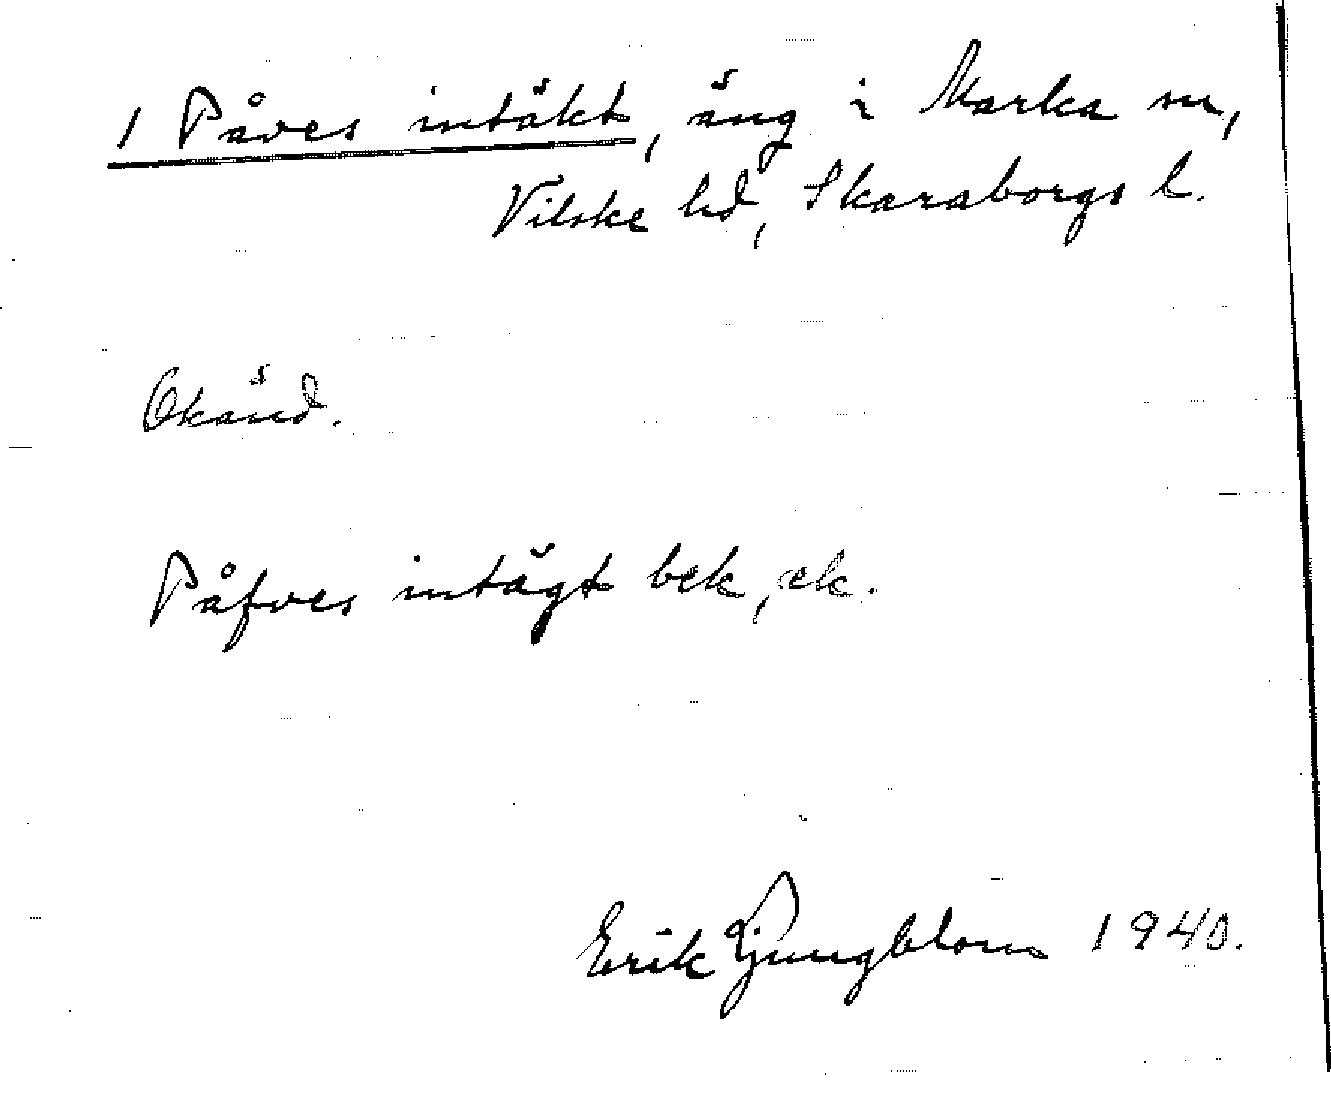 1 Påves intäkt, äng i Marka sn,
Vilske hd, Skaraborgs l.
Okänd.
Påfves intägt bek, ek.
Erik Ljungblom 1940.